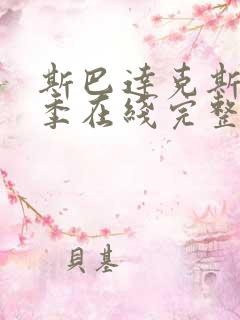 斯巴達克斯
季在綫完整
貝基